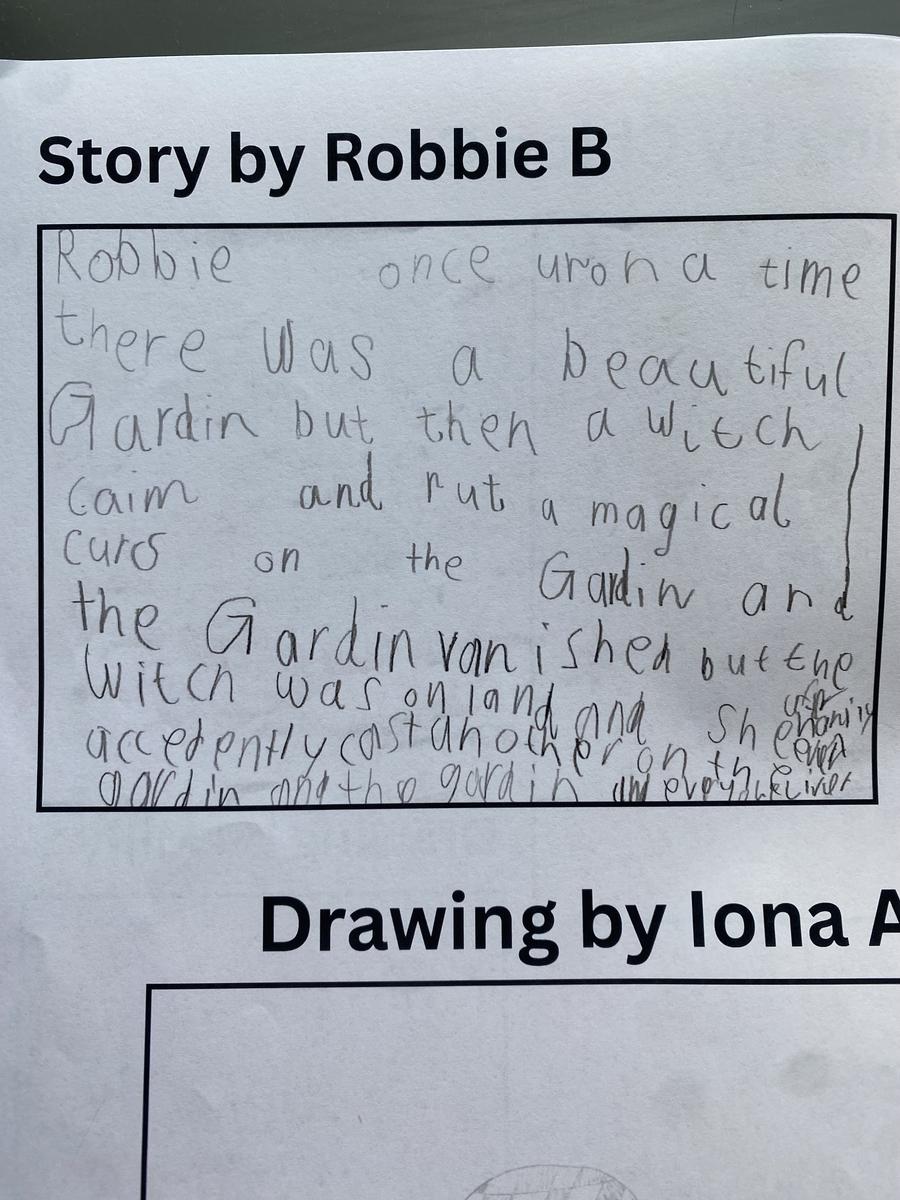 Story by Robbie B
Robbie once upon a time
there was a beautiful
Gardin but then a witch
caim and put a magical
curs on the Gardin and
the Gardin vanished but the
witch was on land and She
accedently cast another on the
gardin and the gardin and every
Drawing by Iona A